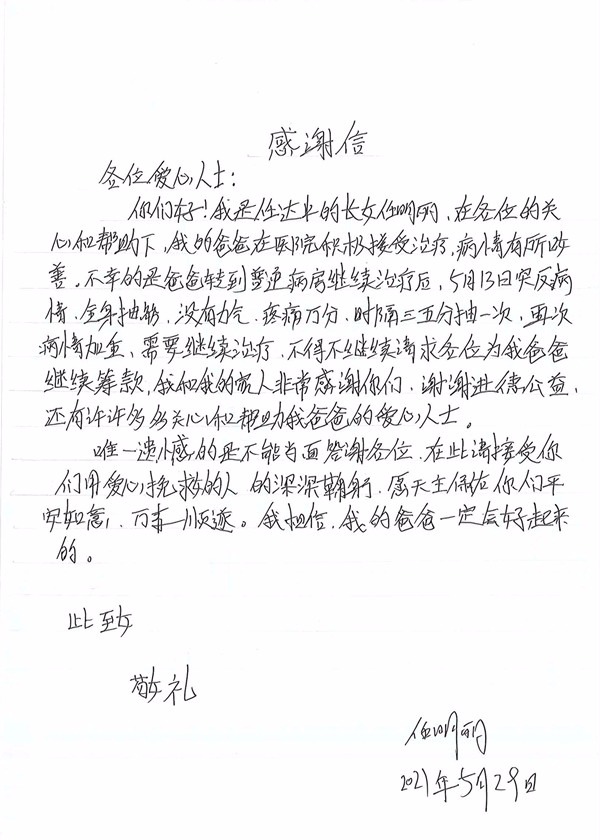 感谢信
各位爱心人士：
你们好！我是任达平的长女任明丽，在各位的关
心和帮助下，我的爸爸在医院积极接受治疗，病情有所改
善。不幸的是爸爸转到普通病房继续治疗后，5月13日突反病
情，全身抽搐，没有力气，疼痛万分，时隔三五分抽一次，再次
病情加重，需要继续治疗，不得不继续请求各位为我爸爸
继续筹款，我和我的家人非常感谢你们，谢谢进德公益，
还有许许多多关心和帮助我爸爸的爱心人士。
唯一遗憾的是不能当面答谢各位，在此请接受你
们用爱心挽救的人的深深鞠躬，愿天主保佑你们平
安如意，万事顺遂。我相信，我的爸爸一定会好起来
的。
此致
敬礼
任明丽
2021年5月29日